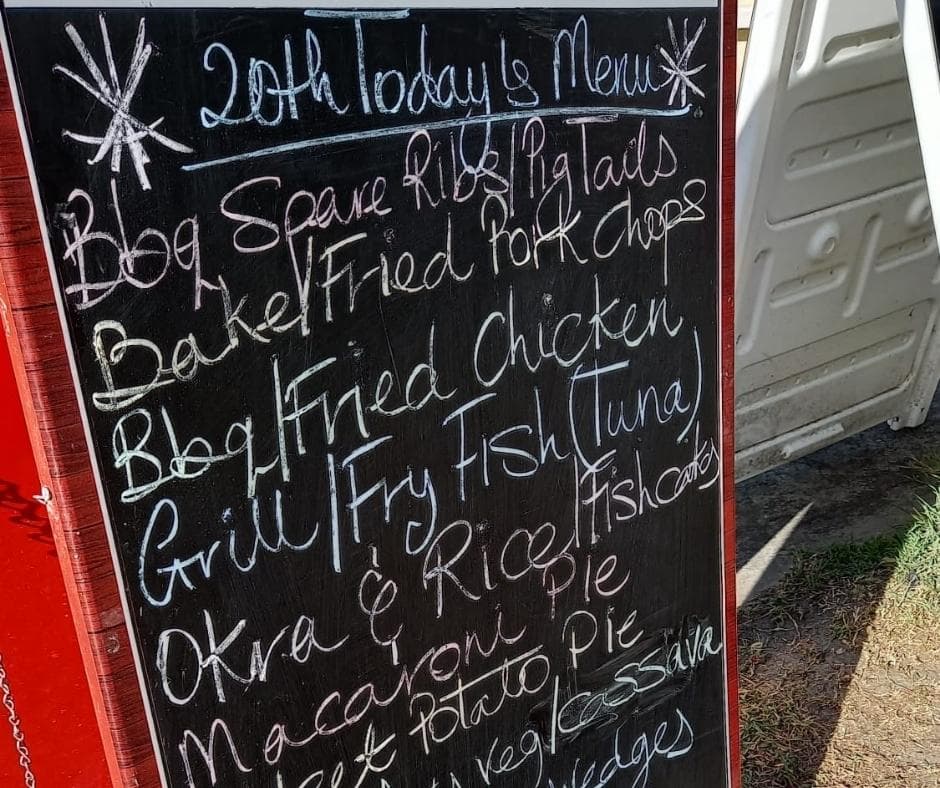 20th Today's Menu
Bbq Spare Ribs/Pig Tails
Bake/Fried Pork Chops
Bbq/Fried Chicken
Grill/Fry Fish (Tuna)
Okra & Rice/Fishcakes
Macaroni Pie
Potato Pie
veg/cassava